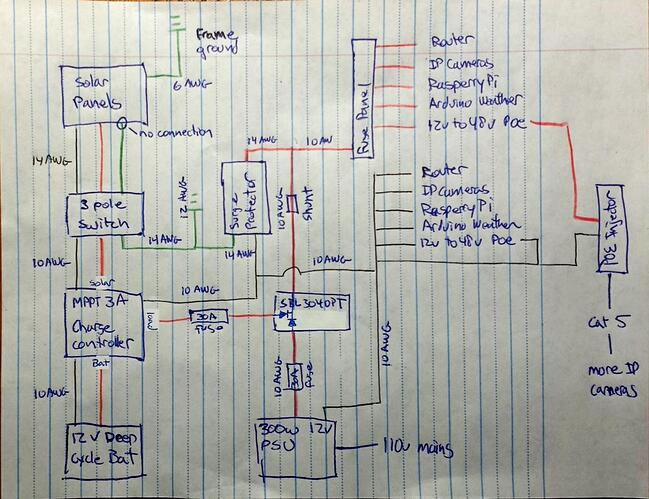 Frame
ground
Solar
Panels
6 AWG
no connection
14 AWG
14 AWG
10 AW
Fuse Panel
Router
IP Cameras
Rasperry Pi
Arduino Weather
12v to 48v PoE
3 pole
Switch
12 AWG
Surge
Protector
10 AWG
Shunt
Router
IP Cameras
Rasperry Pi
Arduino Weather
12v to 48v PoE
POE Injector
14 AWG
14 AWG
10 AWG
Solar
10 AWG
10 AWG
MPPT 3A
Charge
controller
Load
30A
fuse
10 AWG
Bat
10 AWG
10 AWG
30A
fuse
12 V Deep
Cycle Bat
300w 12v
PSU
110v mains
Cat 5
more IP
cameras